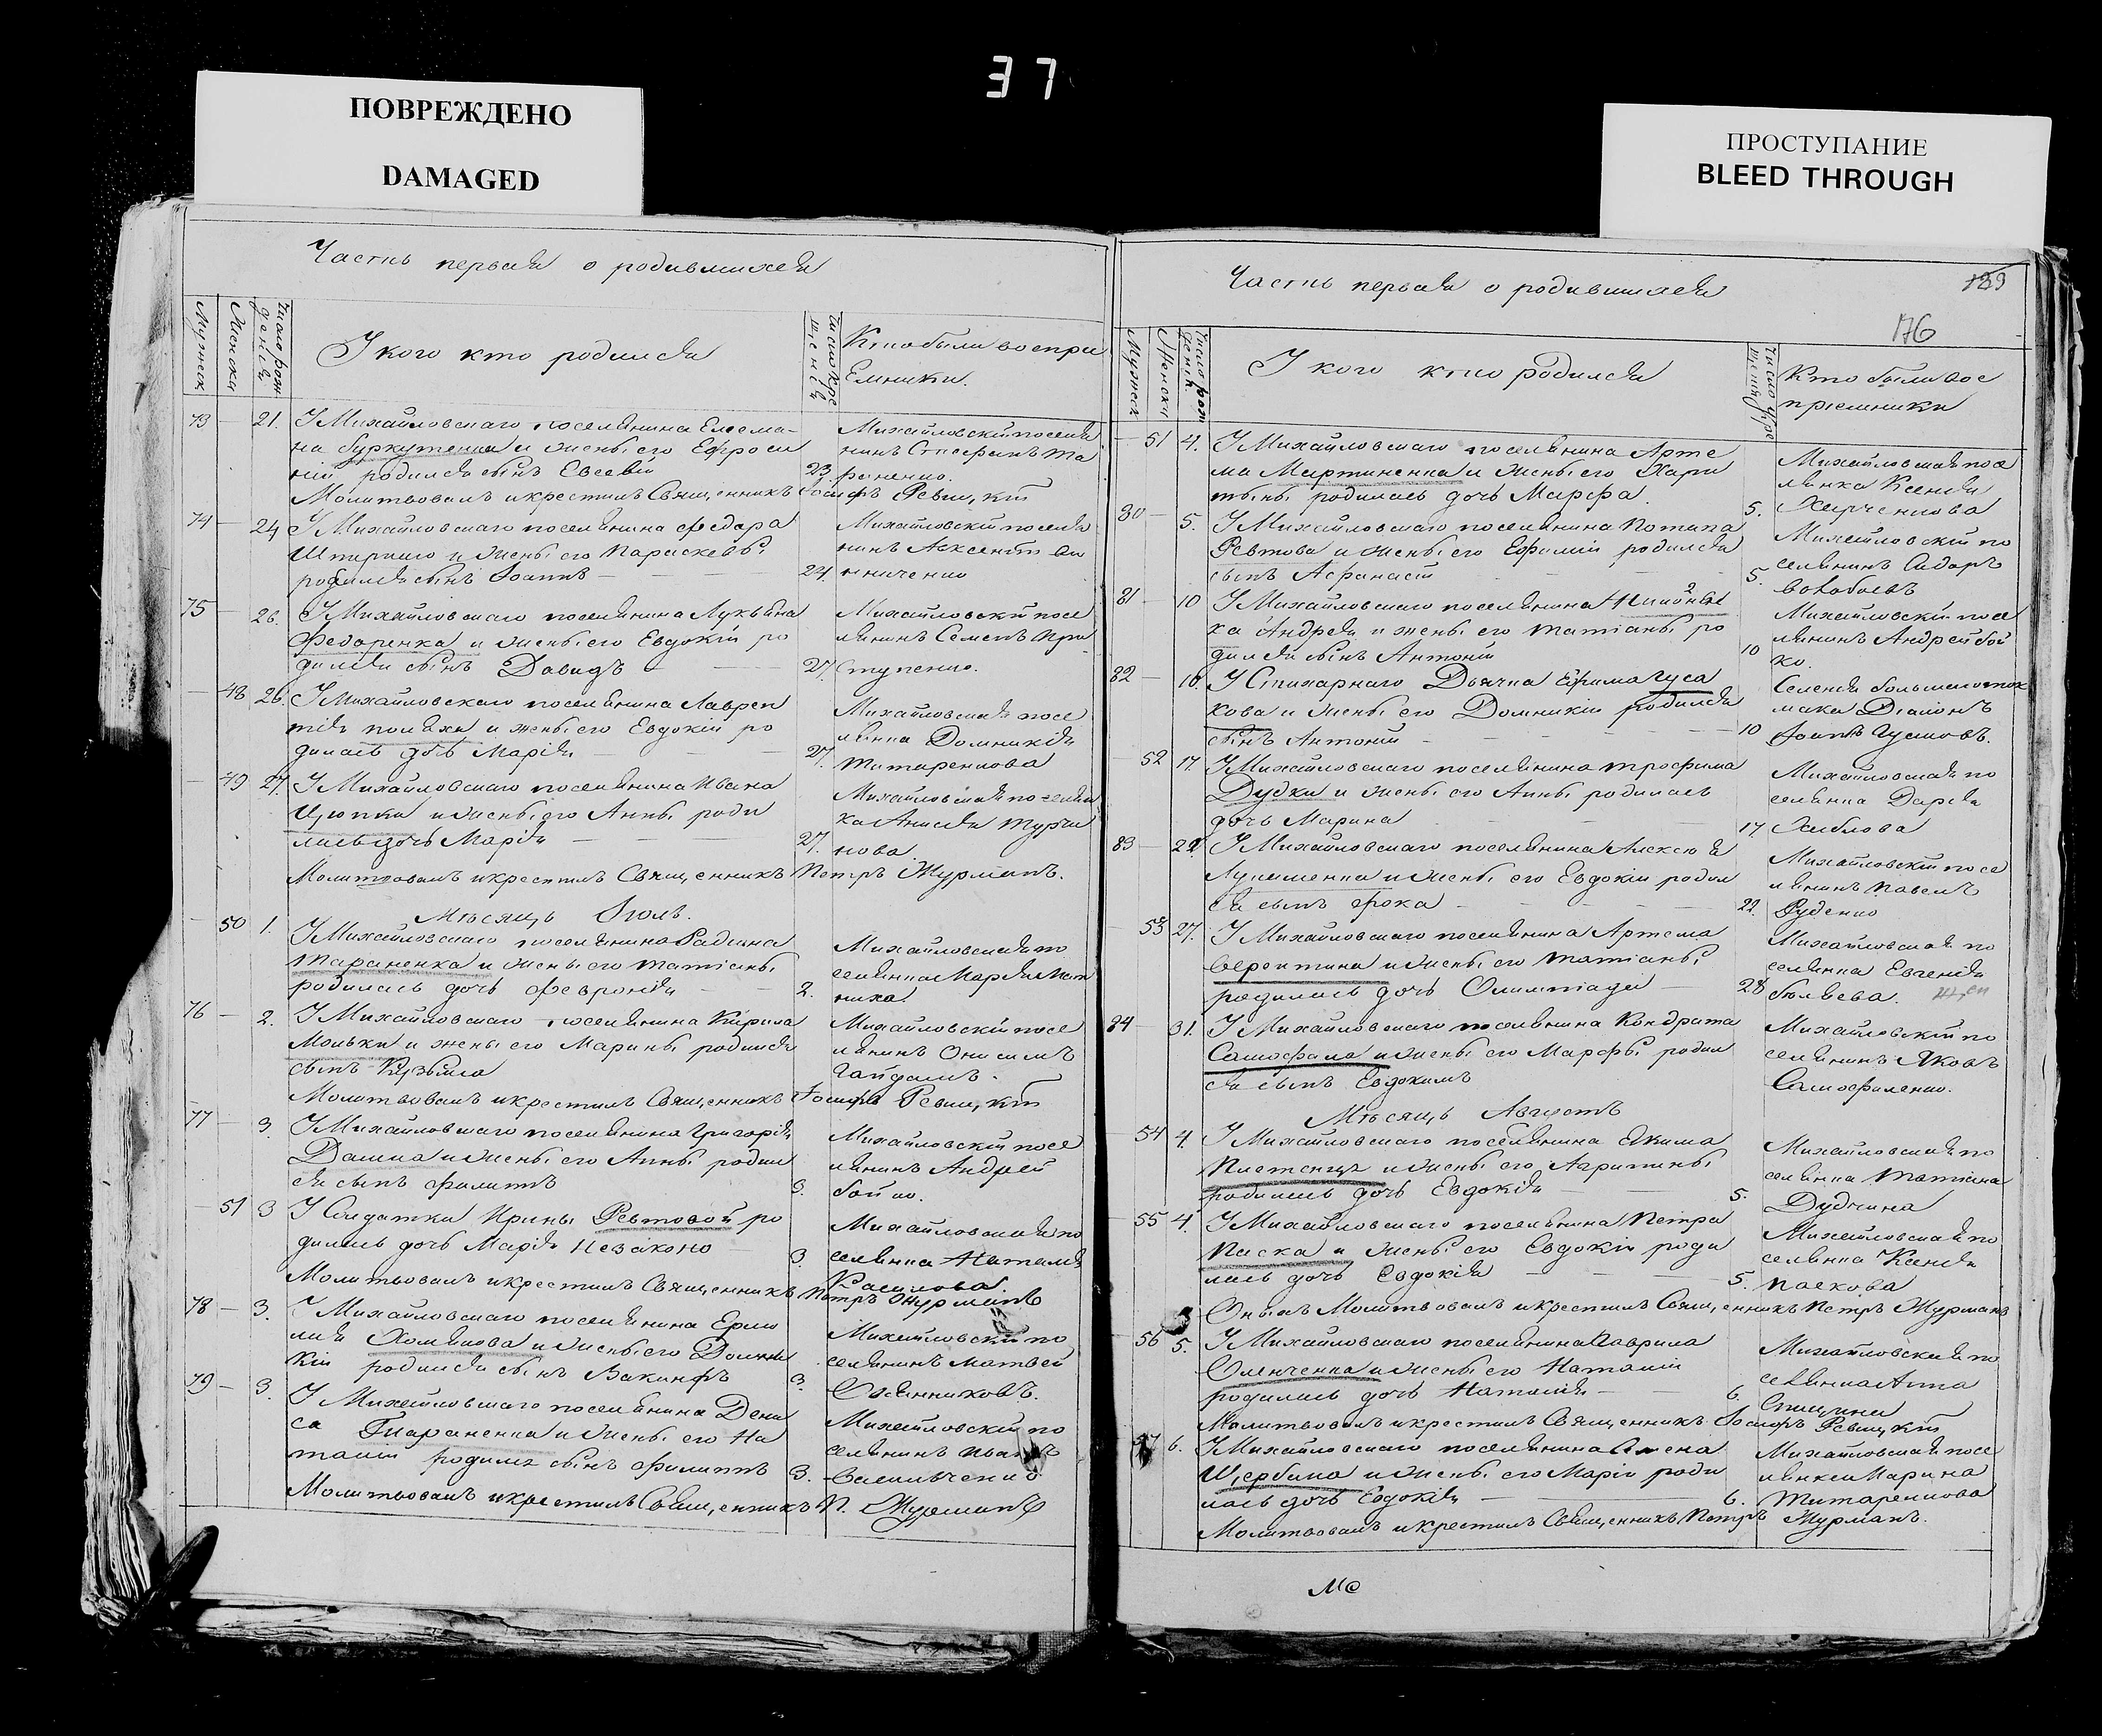 37
ПОВРЕЖДЕНО
DAMAGED
ПРОСТУПАНИЕ
BLEED THROUGH
Часть первая о родившихся
Мужеск
Женски
Число рождения
У кого кто родился
Число крещения
Кто были воспри
емники.
73 21. У Михайловскаго поселянина
на Буркутенка и жены его Ефроси
ніи родился сынъ Евсевій 23.
Михайловскій поселя
нинъ Стефанъ Та
раненко.
Молитвовалъ и крестилъ Священникъ Іосифъ Ревуцкій
74 24 У Михайловскаго поселянина Федора
и жены его Параскевы
родился сынъ Іоаннъ 24.
Михайловскій поселя
нинъ Авксентій
75 26. У Михайловскаго поселянина Лукьяна
Федоренка и жены его Евдокіи ро
дился сынъ Давидъ 27.
Михайловскій посе
лянинъ Семенъ При
ступенко.
48 26. У Михайловскаго поселянина Лаврен
тія и жены его Евдокіи ро
дилась дочь Марія 27.
Михайловская посе
лянка Домникія
Титаренкова
49 27. У Михайловскаго поселянина Ивана
Цюпки и жены его Анны роди
лась дочь Марія 27.
Михайловская поселян
ка Анисія Турчи
нова.
Молитвовалъ и крестилъ Священникъ Петръ Журманъ.
Мѣсяцъ Іюль.
50 1. У Михайловскаго поселянина Радіона
Тараненка и жены его Татіаны
родилась дочь Февронія 2.
Михайловская по
селянка Марфа
76 2. У Михайловскаго поселянина Кирила
Моцьки и жены его Марины родился
сынъ Кузьма
Михайловскій посе
лянинъ Онисимъ
Гайдамъ.
Молитвовалъ и крестилъ Священникъ Іосифъ Ревуцкій
77 3. У Михайловскаго поселянина Григорія
Дашка и жены его Анны родил
ся сынъ Филиппъ 3.
Михайловскій посе
лянинъ Андрей
Бойко.
51 3 У Солдатки Ирины Ревтовой ро
дилась дочь Марія незаконо 3.
Михайловская по
селянка Наталія
Молитвовалъ и крестилъ Священникъ Петръ Журманъ
78 3. У Михайловскаго поселянина Ермо
лая Хомякова и жены его Домни
кіи родился сынъ Вакинфъ 3.
Михайловскій по
селянинъ Матвей
Овсянниковъ.
79 3. У Михайловскаго поселянина Дени
са Тараненка и жены его На
таліи родился сынъ Филиппъ 3.
Михайловскій по
селянинъ Иванъ
Молитвовалъ и крестилъ Священникъ П. Журманъ
Часть первая о родившихся
189
176
Мужеск
Женски
Число рождения
У кого кто родился
Число крещения
Кто были вос
пріемники
51 4. У Михайловскаго поселянина Арте
ма Мартиненка и жены его Хари
тыны родилась дочь Марфа. 5.
Михайловская посе
лянка Ксенія
Харченкова
80 5. У Михайловскаго поселянина Потапа
Ревтова и жены его Ефиміи родился
сынъ Афанасій 5.
Михайловскій по
селянинъ Сидоръ
Воробьевъ
81 10 У Михайловскаго поселянина
ка Андрея и жены его Татіаны ро
дился сынъ Антоній 10
Михайловскій посе
лянинъ Андрей Бой
ко.
82 10. У Стихарнаго Дьячка Ефима Гуса
кова и жены его Домникіи родился
сынъ Антоній 10
Селенія большаго ток
мака Діаконъ
Іоаннъ Гусаковъ.
52 17. У Михайловскаго поселянина Трофима
Дудки и жены его Анны родилась
дочь Марина 17
Михайловская по
селянка Дарія
83 22. У Михайловскаго поселянина Алексея
Лукашенка и жены его Евдокіи родил
ся сынъ Фока 22.
Михайловскій посе
лянинъ Павелъ
Руденко
53 27. У Михайловскаго поселянина Артема
Вереитина и жены его Татіаны
родилась дочь Олимпіада 28
Михайловская по
селянка Евгенія
Беляева.
84 31. У Михайловскаго поселянина Кондрата
Самофала и жены его Марфы родил
ся сынъ Евдокимъ
Михайловскій по
селянинъ Яковъ
Самофаленко.
Мѣсяцъ Августъ
54 4. У Михайловскаго поселянина Екима
и жены его Агрипины
родилась дочь Евдокія 5.
Михайловская по
селянка Татіана
Дудчина
55 4. У Михайловскаго поселянина Петра
Паска и жены его Евдокіи роди
лась дочь Евдокія 5.
Михайловская по
селянка Ксенія
Паскова
Оныхъ Молитвовалъ и крестилъ Священникъ Петръ Журманъ
56 5. У Михайловскаго поселянина Гаврила
Оленченка и жены его Наталіи
родилась дочь Наталія 6.
Михайловская по
селянка Анна
Спицина
Молитвовалъ и крестилъ Священникъ Іосифъ Ревуцкій
57 6. У Михайловскаго поселянина
Щербины и жены его Маріи роди
лась дочь Евдокія 6.
Михайловская посе
лянка Марина
Титаренкова
Молитвовалъ и крестилъ Священникъ Петръ Журманъ.